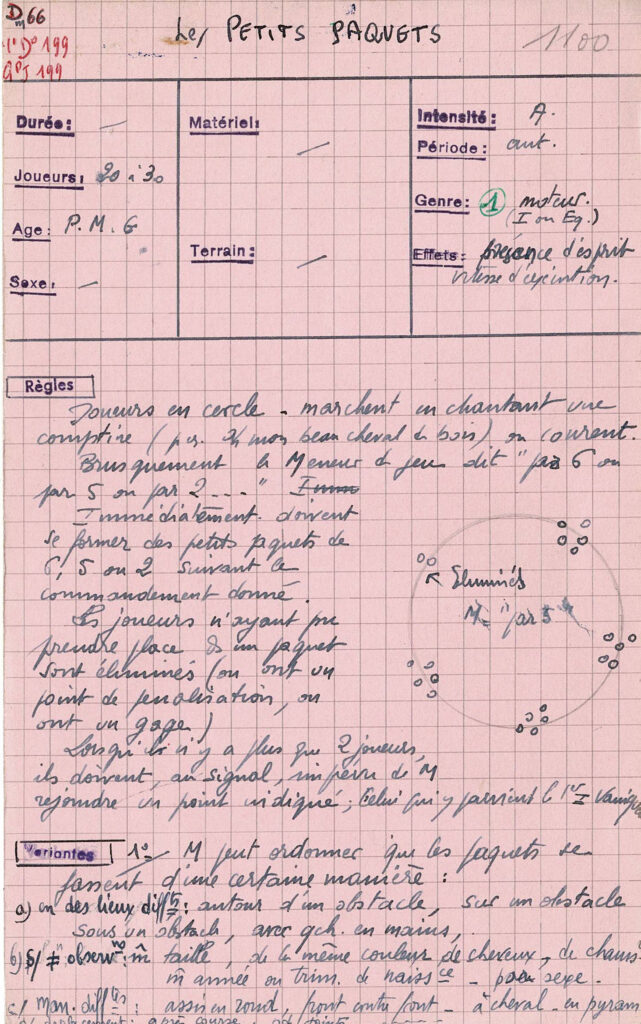 Dm 66
1° D° 199
G°J 199
Les PETITS PAQUETS
1100
Durée: —
Matériel: —
Intensité: A.
Période: aut.
Joueurs: 20 à 30
Genre: 1 moteur.
(I ou Eq.)
Age: P. M. G
Terrain: —
Effets: présence d'esprit
vitesse d'exécution.
Sexe: —
Règles
Joueurs en cercle - marchent en chantant une
comptine (par. mon beau cheval de bois) ou courent.
Brusquement le Meneur de jeu dit "par 6 ou
par 5 ou par 2 ---"
Immédiatement doivent
se former des petits paquets de
6, 5 ou 2 suivant le
commandement donné.
Eliminés
M = "par 5"
Les joueurs n'ayant pu
prendre place ds un paquet
sont éliminés (ou ont un
point de pénalisation, ou
ont un gage)
Lorsqu'il n'y a plus que 2 joueurs,
ils doivent, au signal, imprévu de M
rejoindre un point indiqué; Celui qui y parvient le 1er
Variantes 1° - M peut ordonner que les paquets se
fassent d'une certaine manière :
a) en des lieux diffts : autour d'un obstacle, sur un obstacle
sous un obstacle, avec qch. en mains,
b) s/ ≠ observ.no : m̂ taille, de la même couleur de cheveux, de chauss
m̂ année ou trim. de naissce - sexe.
c/ man. difftes : assis en rond, front contre front - à cheval - en pyram